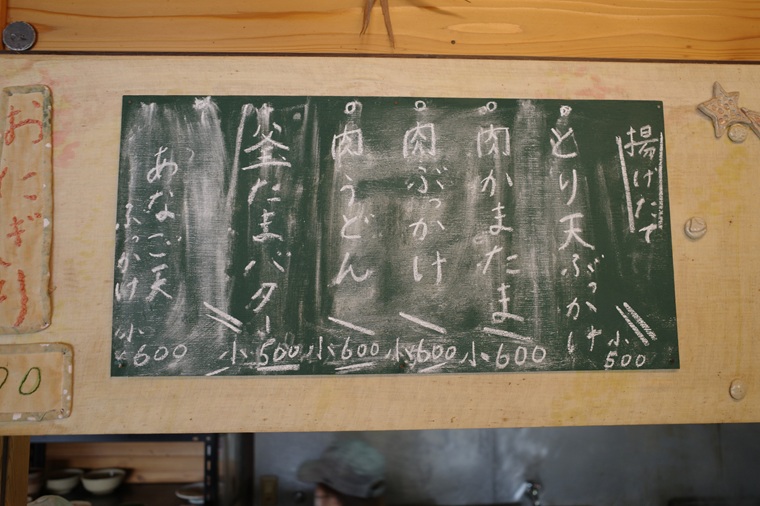 揚げたて
とり天ぶっかけ 小500
肉かまたま 小600
肉ぶっかけ 小600
肉うどん 小600
釜たまバター 小500
あなご天
ぶっかけ 小600
おにぎり
00